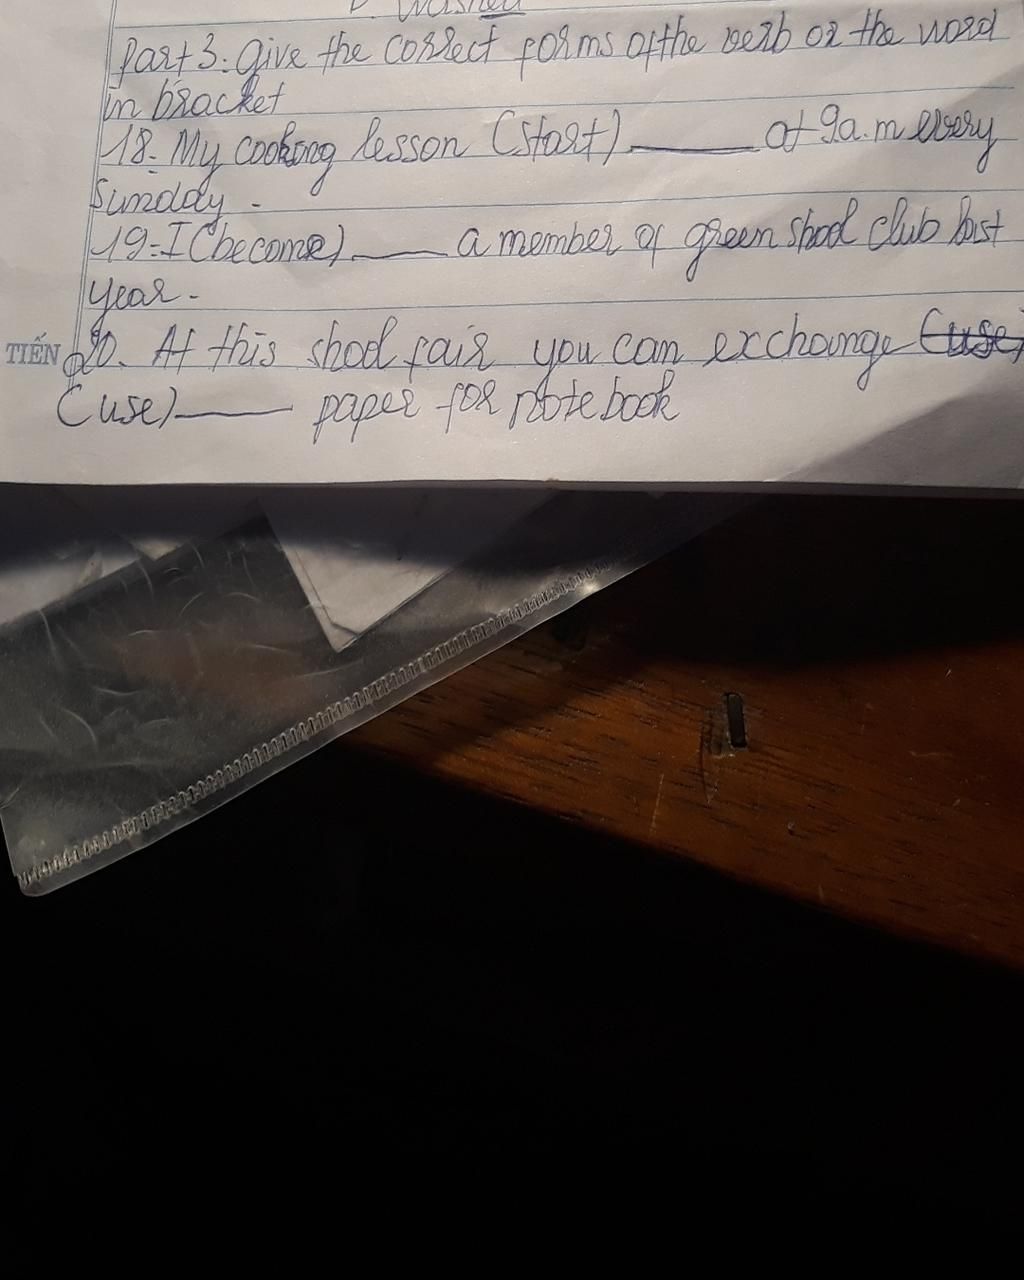 D. Washed
Part 3: Give the correct forms of the verb or the word
in bracket
18. My cooking lesson (start) ______ at 9a.m every
Sunday.
19. I (become) ______ a member of green shool club last
year.
TIẾN 20. At this shool fair you can exchange (use)
(use) ______ paper for notebook